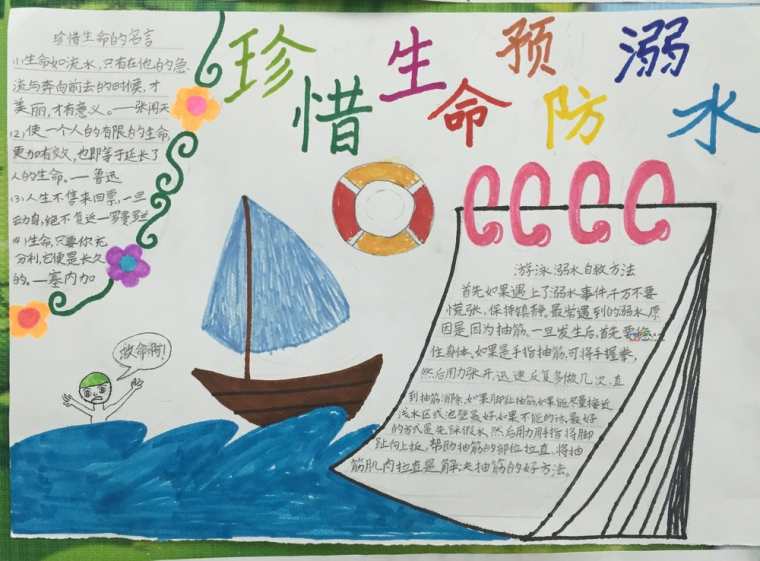 珍惜生命 预防溺水
珍惜生命的名言
(1)生命如流水,只有在他的急
流与奔向前去的时候,才
美丽,才有意义。—张闻天
(2)使一个人的有限的生命,
更加有效,也即等于延长了
人的生命。—鲁迅
(3)人生不售来回票,一旦
动身,绝不复返—罗曼罗兰
(4)生命,只要你充
分利,它便是长久
的。—塞内加
救命啊!
游泳溺水自救方法
首先如果遇上了溺水事件千万不要
慌张,保持镇静,最常遇到的溺水原
因是因为抽筋。一旦发生后,首先要
性身体,如果是手指抽筋,可将手握拳,
然后用力张开,迅速反复多做几次,直
到抽筋消除,如果脚趾抽筋如果能尽量接近
浅水区或池壁最好,如果不能的话,最好
的方式是先深吸水,然后用力用手指将脚
趾向上扳,帮助抽筋的部位拉直,将抽
筋肌肉拉直是解决抽筋的好方法。